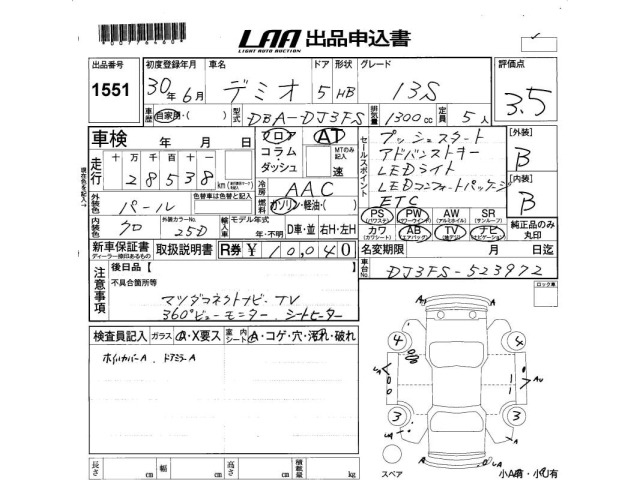 LAA 出品申込書
LIGHT AUTO AUCTION
出品番号 初度登録年月 車名 ドア 形状 グレード 評価点
1551 30年6月 デミオ 5 HB 13S 3.5
車歴 自家用・( ) 型式 DBA-DJ3FS 排気量 1300cc 定員 5人
車検 年 月 日 フロア AT セールスポイント プッシュスタート [外装]
コラム・ MTのみ記入 アドバンストキー B
走行 十万千百十 ダッシュ 速 LEDライト
28538 km 冷房 AAC LEDコンフォートパッケージ [内装]
外装色 色替車は色替と記入 燃料 ガソリン・軽油・( ) ETC B
パール PS PW AW SR
(パワステ) (パワーウインドー) (アルミホイル) (サンルーフ)
内装色 クロ 外装カラーNo. 25D 輸入車 モデル年式 年・不明 D車・並 右H・左H カワ AB TV ナビ 純正品のみ丸印
(カワシート) (エアバッグ) (ナビゲーション)
新車保証書 取扱説明書 R券 ¥ 10,040 名変期限 月 日迄
ディーラー捺印あるもの 車台No. DJ3FS-523972
注意事項 後日品【 】
不具合箇所等 ロック車
マツダコネクトナビ・TV
360°ビューモニター シートヒーター
検査員記入 ガラス A・X要ス 室内シート A・コゲ・穴・汚れ・破れ
ホイルカバーA、ドアミラーA
4 4
3 3
長さ cm 幅 cm 高さ cm 積載量 kg
スペア 小A有・小U有